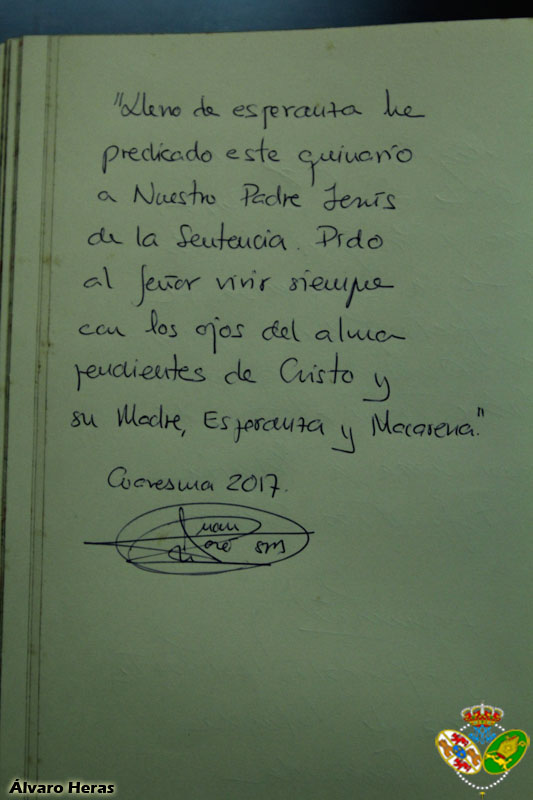 "Lleno de esperanza he
predicado este quinario
a Nuestro Padre Jesús
de la Sentencia. Pido
al Señor vivir siempre
con los ojos del alma
pendientes de Cristo y
su Madre, Esperanza y Macarena."
Cuaresma 2017.
Juan
José SM
Álvaro Heras